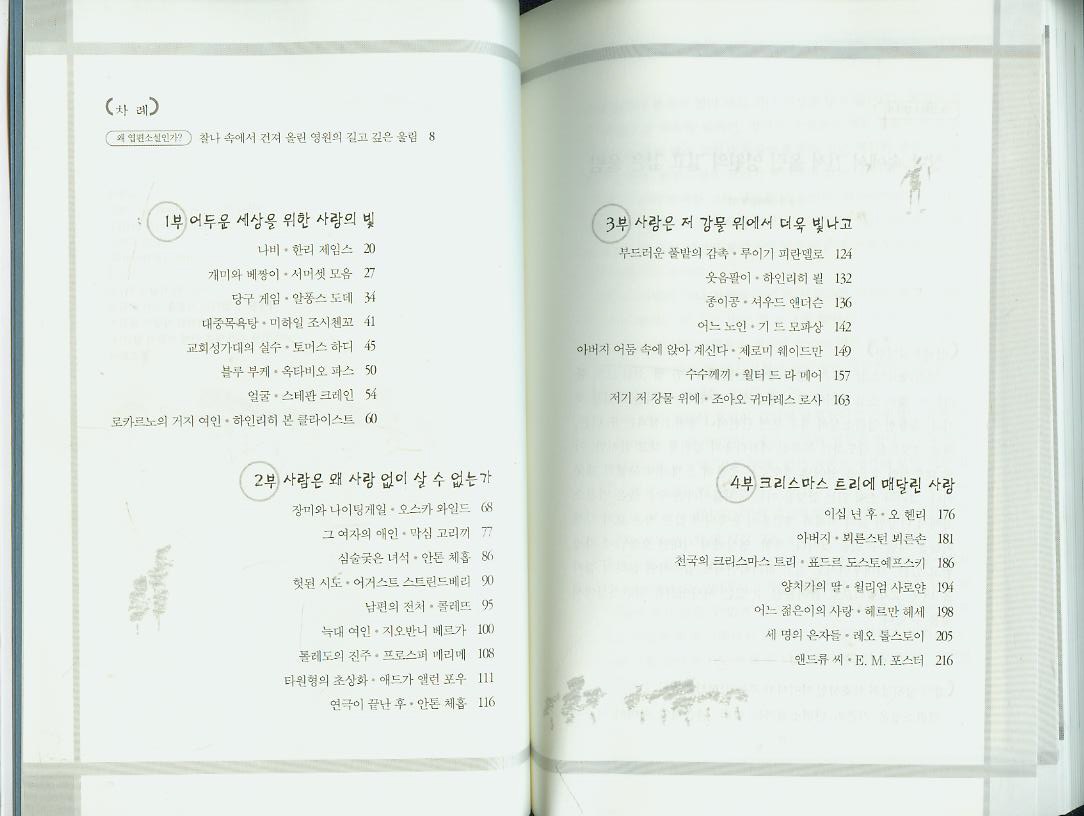 (차 례)
왜 엽편소설인가? 찰나 속에서 건져 올린 영원의 길고 깊은 울림 8
1부 어두운 세상을 위한 사랑의 빛
나비 • 한리 제임스 20
개미와 베짱이 • 서머셋 모음 27
당구 게임 • 알퐁스 도데 34
대중목욕탕 • 미하일 조시첸꼬 41
교회성가대의 실수 • 토머스 하디 45
블루 부케 • 옥타비오 파스 50
얼굴 • 스테판 크레인 54
로카르노의 거지 여인 • 하인리히 본 클라이스트 60
2부 사람은 왜 사랑 없이 살 수 없는가
장미와 나이팅게일 • 오스카 와일드 68
그 여자의 애인 • 막심 고리끼 77
심술궂은 녀석 • 안톤 체홉 86
헛된 시도 • 어거스트 스트린드베리 90
남편의 전처 • 콜레뜨 95
늑대 여인 • 지오반니 베르가 100
톨레도의 진주 • 프로스퍼 메리메 108
타원형의 초상화 • 애드가 앨런 포우 111
연극이 끝난 후 • 안톤 체홉 116
3부 사랑은 저 강물 위에서 더욱 빛나고
부드러운 풀밭의 감촉 • 루이기 피란델로 124
웃음팔이 • 하인리히 뵐 132
종이공 • 셔우드 앤더슨 136
어느 노인 • 기 드 모파상 142
아버지 어둠 속에 앉아 계신다 • 제로미 웨이드만 149
수수께끼 • 월터 드 라 메어 157
저기 저 강물 위에 • 조아오 귀마레스 로사 163
4부 크리스마스 트리에 매달린 사랑
이십 년 후 • 오 헨리 176
아버지 • 뵈른스턴 뵈른손 181
천국의 크리스마스 트리 • 표드르 도스토예프스키 186
양치기의 딸 • 윌리엄 사로얀 194
어느 젊은이의 사랑 • 헤르만 헤세 198
세 명의 은자들 • 레오 톨스토이 205
앤드류 씨 • E. M. 포스터 216